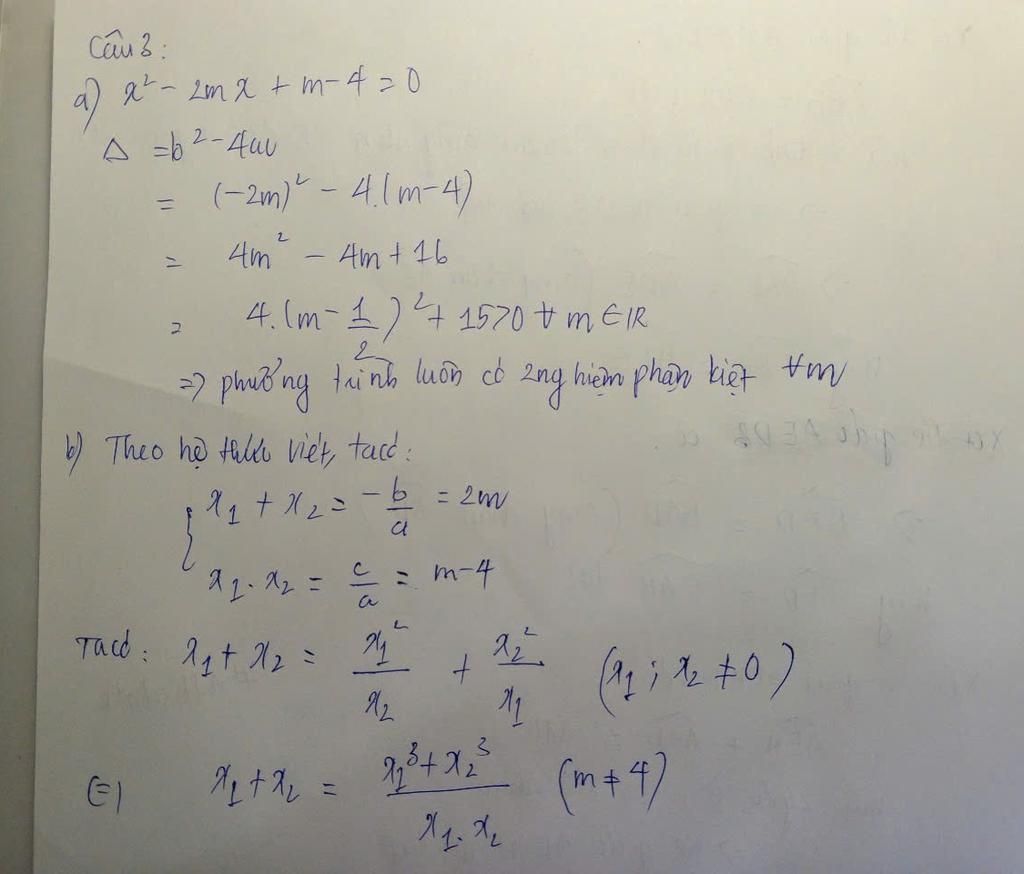 Câu 3:
a) x² - 2mx + m-4 = 0
Δ = b² - 4ac
= (-2m)² - 4.(m-4)
= 4m² - 4m + 16
= 4.(m - 1/2)² + 15 > 0 ∀ m ∈ IR
=> phương trình luôn có 2 nghiệm phận kiệt ∀m
b) Theo hệ thức Viét, ta có:
x₁ + x₂ = -b/a = 2m
x₁.x₂ = c/a = m-4
Ta có: x₁ + x₂ = x₁²/x₂ + x₂²/x₁ (x₁; x₂ ≠ 0)
(=) x₁ + x₂ = (x₁³ + x₂³)/(x₁.x₂) (m ≠ 4)